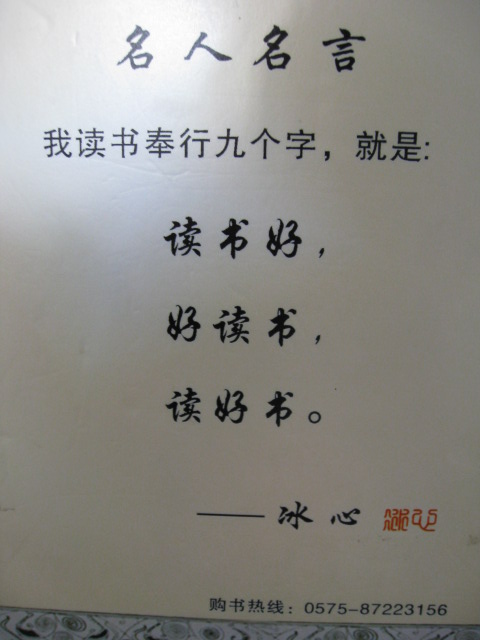 名人名言
我读书奉行九个字，就是:
读书好，
好读书，
读好书。
——冰心
购书热线：0575-87223156